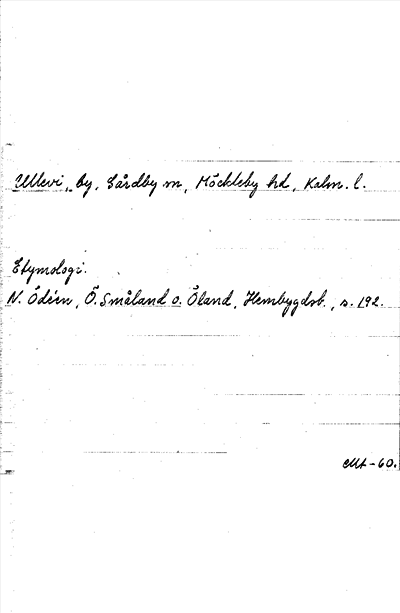 Ullevi, by, Gårdby sn, Möckleby hd, Kalm. l.
Etymologi.
N. Ödéen, Ö. Småland o. Öland, Hembygdsb., s. 192.
-60.